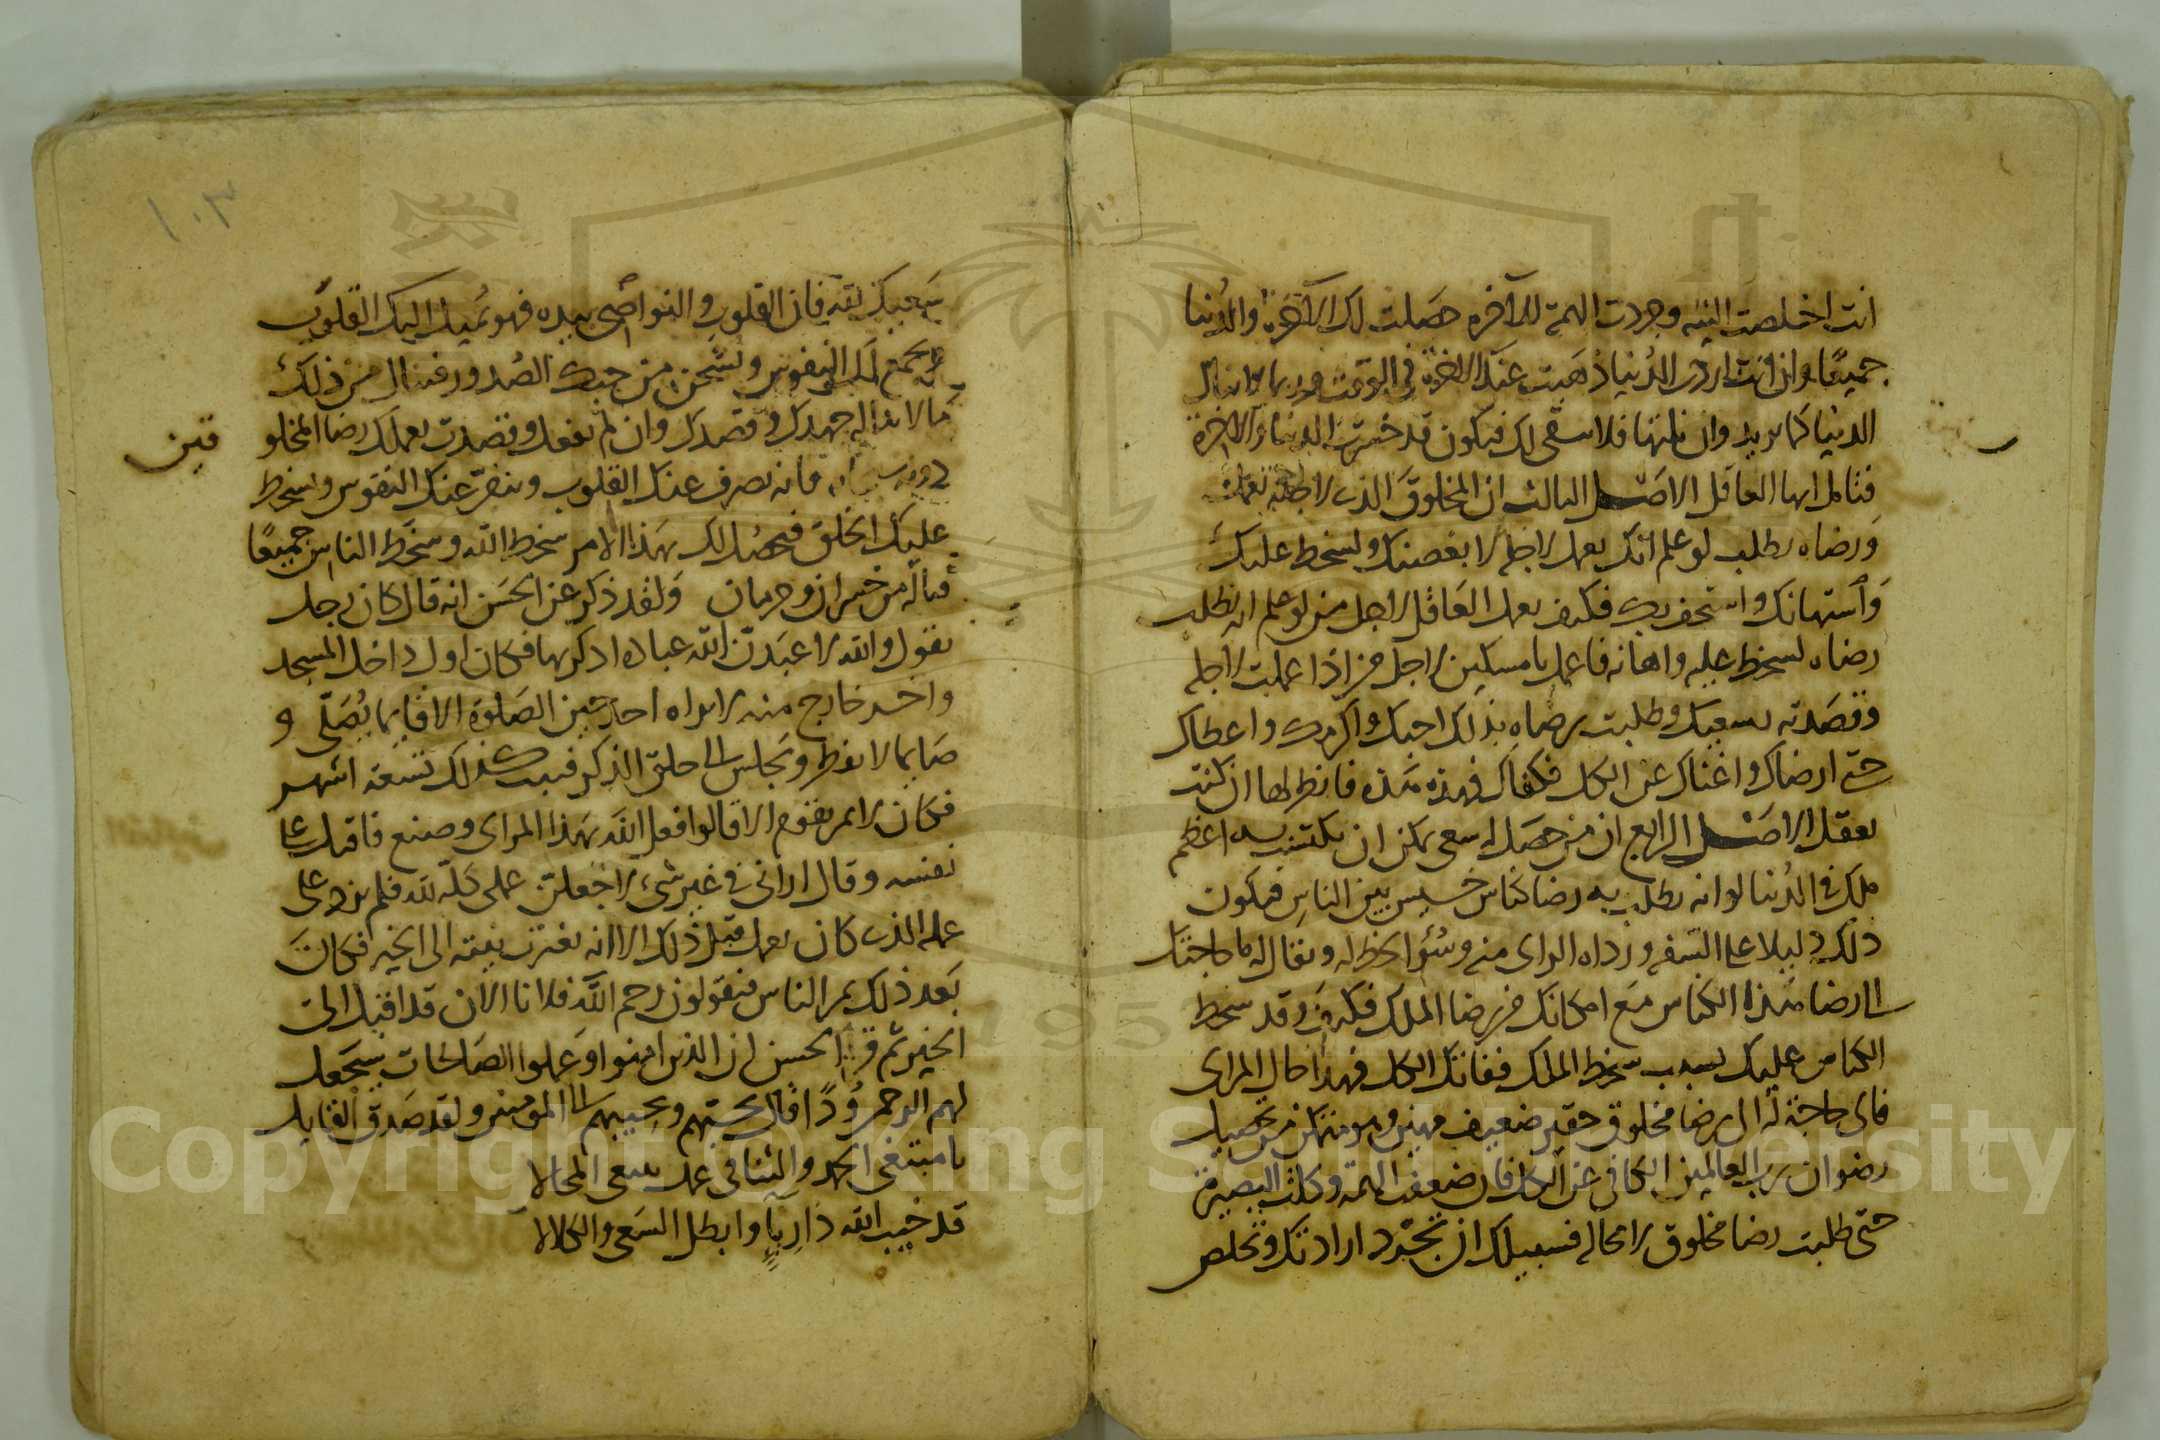 انت اخلصت النيه وجردت الهمة للاخره حصلت لك الاخرة والدنيا
جميعا وان انت اردت الدنيا ذهبت عنك الاخرة في الوقت وربما لا تنال
الدنيا كما تريد وان نلتها فلا تبقى لك فتكون قد خسرت الدنيا والاخرة
فتامل ايها العاقل الاصل الثالث ان المخلوق الذى لاجله تعمل
ورضاه تطلب لو علم انك تعمل لاجله لابغضك ولسخط عليك
واستهانك واستخف بك فكيف يعمل العاقل لاجل من لو علم انه يطلب
رضاه لسخط عليه واهانه فاعمل يا مسكين لاجل من اذا عملت لاجله
وقصدته بسعيك وطلبت رضاه بذلك احبك واكرمك واعطاك
حتى ارضاك واغناك عن الكل فكفاك فهذه هذه فانظر لها ان كنت
تعقل الاصل الرابع ان من حصل له سعى يمكن ان يكتسب به اعظم
ملك في الدنيا لو انه يطلب به رضا كناس خسيس بين الناس فيكون
ذلك دليلا على السفه ورداه الراى منه وسؤ الحظ له ويقال له ما حاجتك
الى رضا هذا الكناس مع امكانك من رضا الملك فكيف وقد سخط
الكناس عليك بسبب سخط الملك ففاتك الكل فهذا حال المراى
فاى حاجة له الى رضا مخلوق حقير ضعيف مهين وهو متمكن من تحصيل
رضوان رب العالمين الكافى عن الكل فان ضعفت الهمه وكلت البصيرة
حتى طلبت رضا مخلوق لا محاله فسبيلك ان تجرد ارادتك وتخلص
١٠٣
سعيك لله فان القلوب والنواصى بيده فهو يميل اليك القلوب
ويجمع لك النفوس ويشحن من حبك الصدور فتنال من ذلك
ما لا تناله جهدك وقصدك وان لم تفعل وقصدت بعملك رضا المخلو
قين
دونه سبحانه فانه يصرف عنك القلوب وينفر عنك النفوس ويسخط
عليك الخلق فيحصل لك بهذا الامر سخط الله وسخط الناس جميعا
فياله من خسران وحرمان ولقد ذكر عن الحسن انه قال كان رجل
يقول والله لاعبدن الله عباده اذكر بها فكان اول داخل المسجد
واخر خارج منه لا يراه احد حين الصلوة الا قايما يصلى و
صايما لا يفطر ويجلس الى حلق الذكر فلبث كذلك تسعة اشهر
فكان لا يمر بقوم الا قالوا فعل الله بهذا المراى وصنع فاقبل على
نفسه وقال ارانى في غير شئ لاجعلن عملى كله لله فلم يزد على
عمله الذى كان يعمل قبل ذلك الا انه تغيرت نيته الى الخير فكان
بعد ذلك يمر الناس فيقولون رحم الله فلانا الان قد اقبل الى
الخير ثم قرا الحسن ان الذين امنوا وعملوا الصالحات سيجعل
لهم الرحمن ودا قال يحبهم ويحببهم الى المومنين ولقد صدق القايل
يا مبتغى الحمد والثنا فى عمل يبتغى المحالا
قد خيب الله ذا رياء وابطل السعى والكلالا